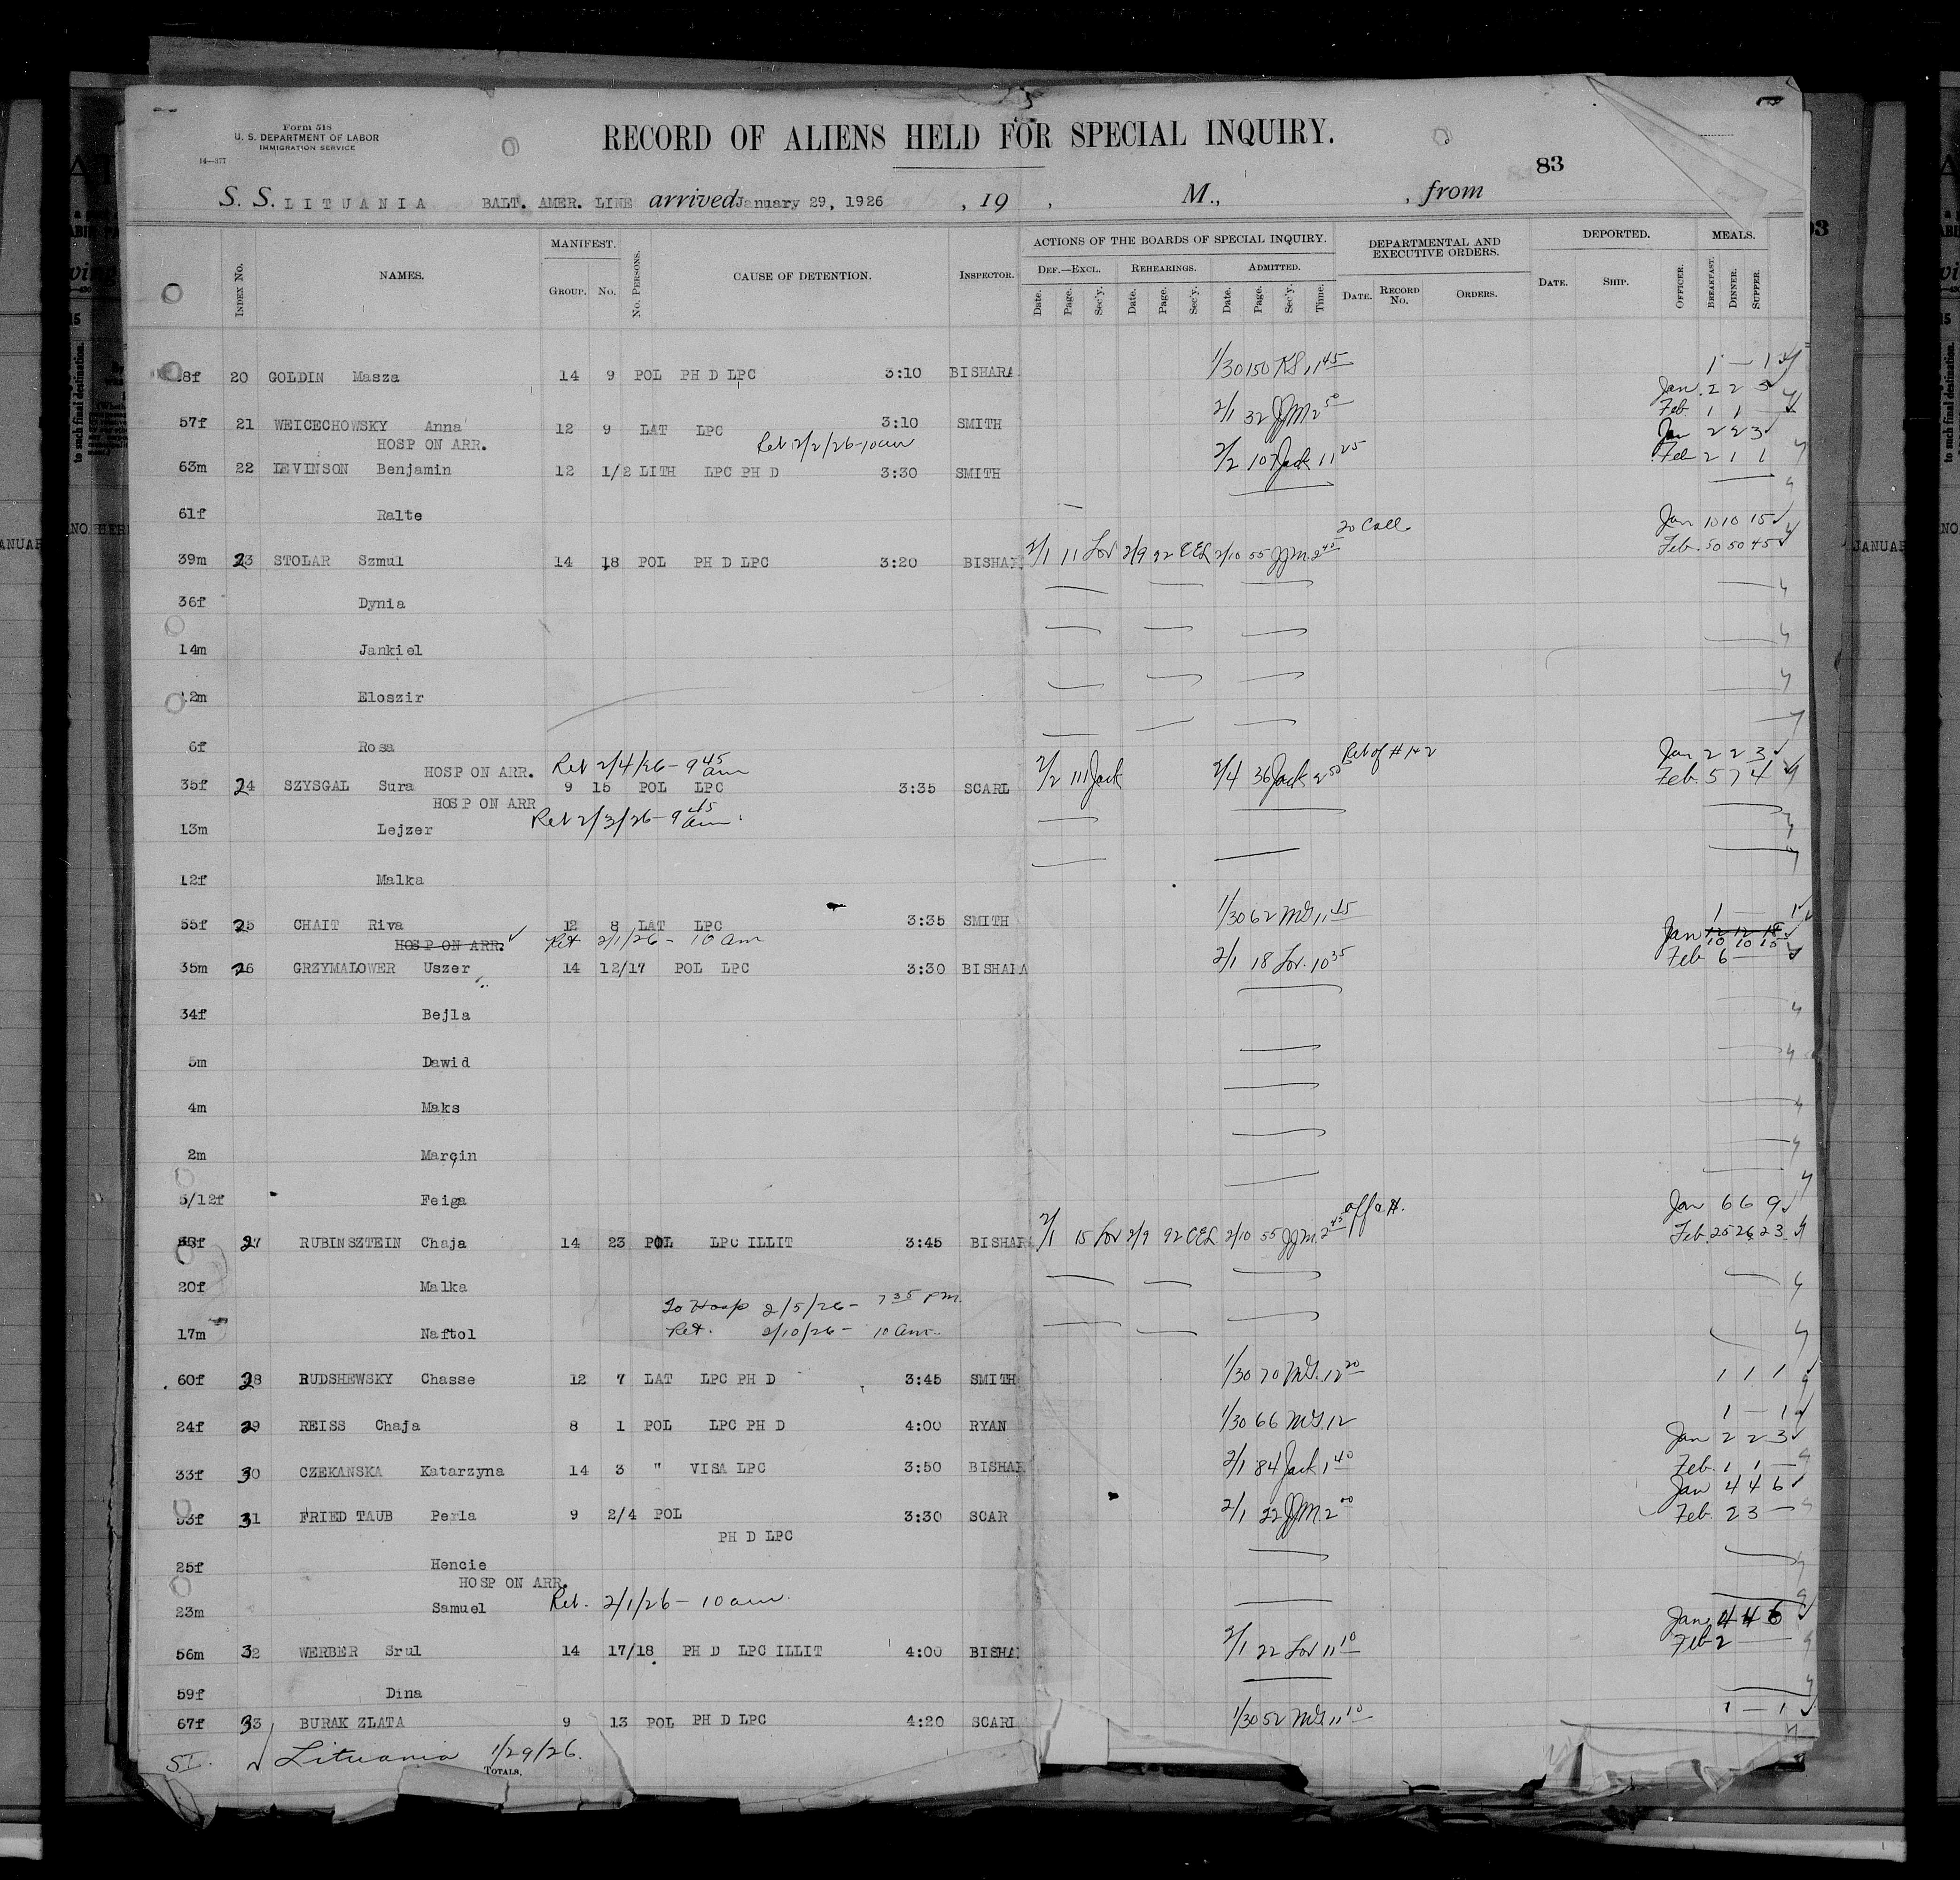 Form 518
U. S. DEPARTMENT OF LABOR
IMMIGRATION SERVICE
14—377
RECORD OF ALIENS HELD FOR SPECIAL INQUIRY.
83
S. S. LITUANIA BALT. AMER. LINE arrived January 29, 1926 , 19 , M., , from
INDEX No. NAMES. MANIFEST. GROUP. No. No. PERSONS. CAUSE OF DETENTION. INSPECTOR. ACTIONS OF THE BOARDS OF SPECIAL INQUIRY. DEF.—EXCL. Date. Page. Sec'y. REHEARINGS. Date. Page. Sec'y. ADMITTED. Date. Page. Sec'y. Time. DEPARTMENTAL AND EXECUTIVE ORDERS. DATE. RECORD No. ORDERS. DEPORTED. DATE. SHIP. OFFICER. MEALS. BREAKFAST. DINNER. SUPPER.
8f 20 GOLDIN Masza 14 9 POL PH D LPC 3:10 BISHARA 1/30 150 KS 11 45 1 — 1
Jan 2 2 3
57f 21 WEICECHOWSKY Anna 12 9 LAT LPC 3:10 SMITH 2/1 32 JJM 2 50 Feb 1 1 —
HOSP ON ARR. Ret 2/2/26-10am Jan 2 2 3
63m 22 LEVINSON Benjamin 12 1/2 LITH LPC PH D 3:30 SMITH 2/2 107 Jack 11 25 Feb 2 1 1
61f Ralte
Jan 10 10 15
39m 23 STOLAR Szmul 14 18 POL PH D LPC 3:20 BISHAR 2/1 11 Lov 2/9 92 CEL 2/10 55 JJM 2 45 Feb. 50 50 45
36f Dynia
14m Jankiel
12m Eloszir
6f Rosa
HOSP ON ARR. Ret 2/4/26-9 45 am Jan 2 2 3
35f 24 SZYSGAL Sura 9 15 POL LPC 3:35 SCARL 2/2 111 Jack 2/4 36 Jack 2 50 Ret of # 1+2 Feb. 5 7 4
HOSP ON ARR
13m Lejzer Ret 2/3/26-9 45 am
12f Malka
55f 25 CHAIT Riva 12 8 LAT LPC 3:35 SMITH 1/30 62 MG 11 45 1 — 1
HOSP ON ARR. Ret 2/1/26- 10 am Jan 12 12 18 10 10 15
35m 26 GRZYMALOWER Uszer 14 12/17 POL LPC 3:30 BISHARA 2/1 18 Lov. 10 35 Feb 6 —
34f Bejla
5m Dawid
4m Maks
2m Marcin
5/12f Feiga
Jan 6 6 9
27 RUBINSZTEIN Chaja 14 23 POL LPC ILLIT 3:45 BISHAR 2/1 15 Lov 2/9 92 CEL 2/10 55 JJM. 2 45 Feb. 25 26 23
20f Malka
To Hosp 2/5/26- 7 35 PM.
17m Naftol Ret. 2/10/26- 10 am.
60f 28 RUDSHEWSKY Chasse 12 7 LAT LPC PH D 3:45 SMITH 1/30 70 MG. 12 20 1 1 1
24f 29 REISS Chaja 8 1 POL LPC PH D 4:00 RYAN 1/30 66 MG 12 1 — 1
Jan 2 2 3
33f 30 CZEKANSKA Katarzyna 14 3 " VISA LPC 3:50 BISHAR 2/1 84 Jack 1 40 Feb. 1 1 —
Jan 4 4 6
53f 31 FRIED TAUB Perla 9 2/4 POL 3:30 SCAR 2/1 22 JJM. 2 00 Feb. 2 3 —
PH D LPC
25f Hencie
HOSP ON ARR.
23m Samuel Ret. 2/1/26- 10 am.
Jan 4 4 6
56m 32 WERBER Srul 14 17/18 PH D LPC ILLIT 4:00 BISHA 2/1 22 Lov 11 10 Feb 2 —
59f Dina
67f 33 BURAK ZLATA 9 13 POL PH D LPC 4:20 SCARL 1/30 52 MG 11 10 1 — 1
SI. Lituania 1/29/26.
TOTALS,